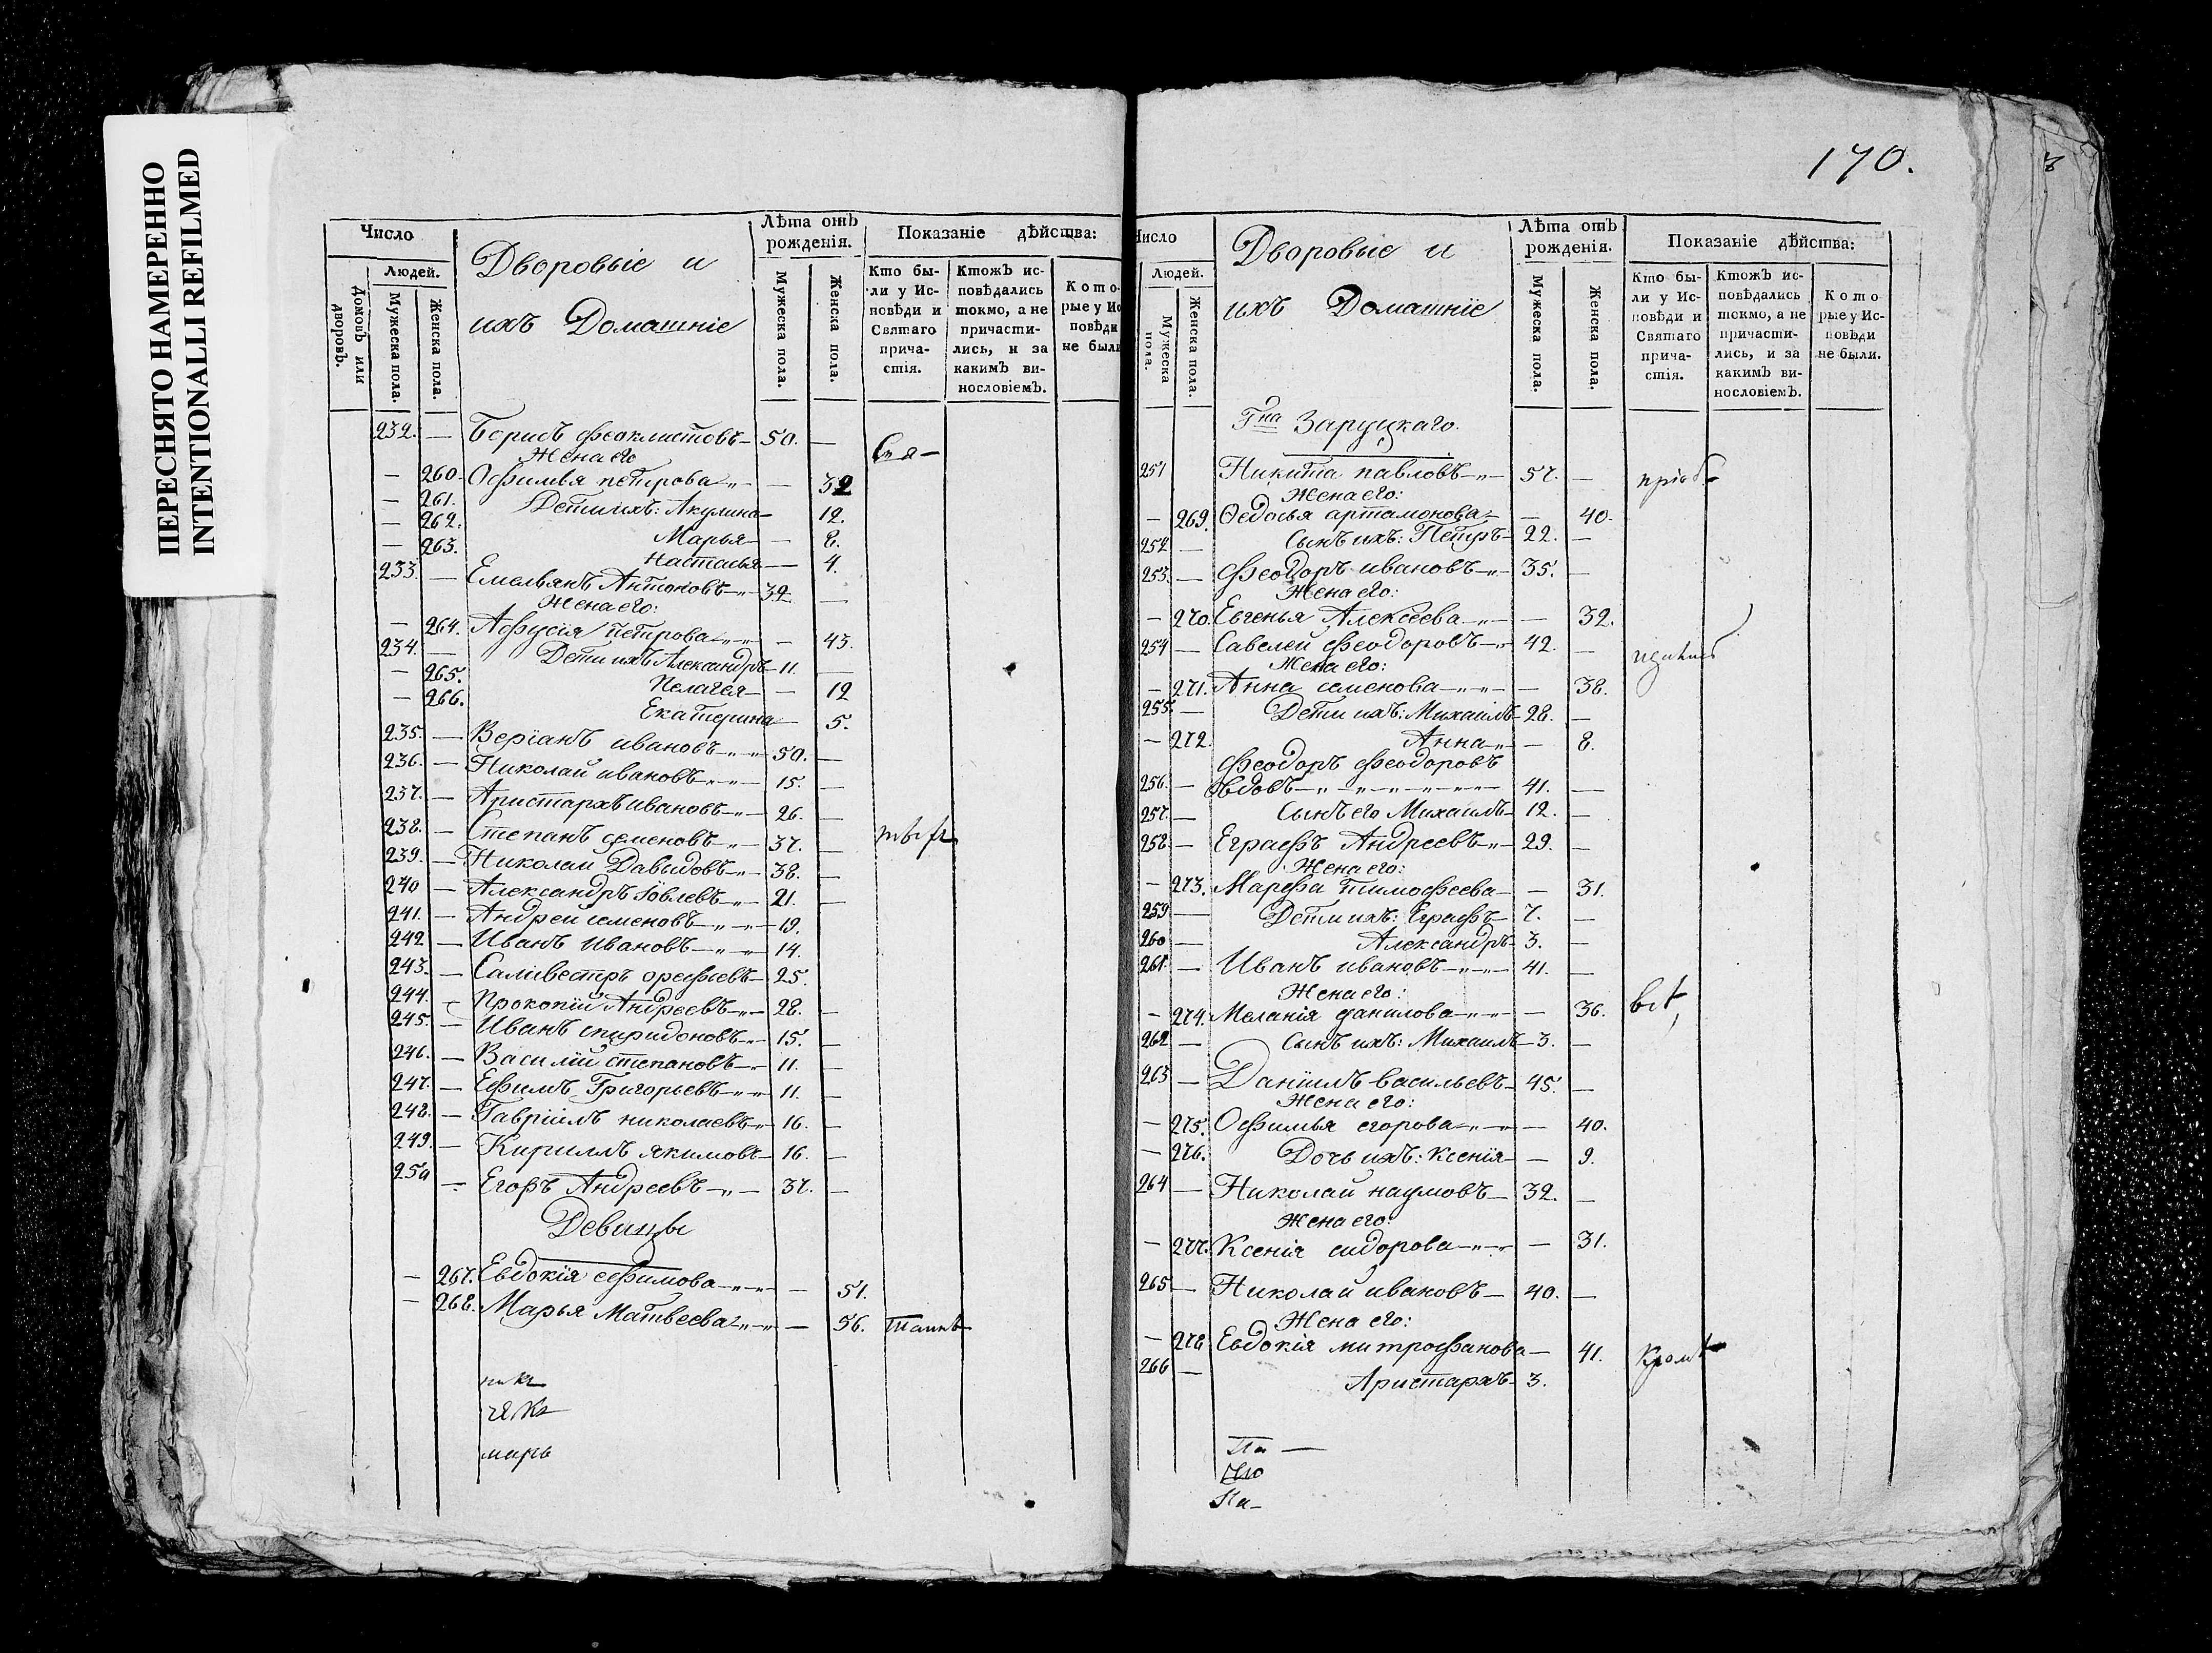 ПЕРЕСНЯТО НАМЕРЕННО
INTENTIONALLI REFILMED
Число
Людей.
Домовъ или дворовъ.
Мужеска пола.
Женска пола.
Дворовыіе и
ихъ Домашніе
Лѣта отъ рожденія.
Мужеска пола.
Женска пола.
Показаніе дѣйства:
Кто бы-
ли у Ис-
повѣди и
Святаго
прича-
стія.
Ктожъ ис-
повѣдались
токмо, а не
причасти-
лись, и за
какимъ ви-
нословіемъ.
Кото-
рые у Ис
повѣди
не были
232. — Борисъ Феоклистовъ — 50. —
Жена его
— 260. Офимья петрова — 32
— 261. Дети ихъ: Акулина — 12.
— 262. Марья — 8.
— 263. Настасья — 4.
233. — Емельянъ Антоновъ — 32. —
Жена его:
— 264. петрова — 43.
234. — Дети ихъ Александръ — 11. —
— 265. Пелагея — 12
— 266. Екатерина — 5.
235. — Веріанъ ивановъ — 50. —
236. — Николай ивановъ — 15. —
237. — Аристархъ ивановъ — 26. —
238. — Степанъ семеновъ — 37. —
239. — Николай Давыдовъ — 38. —
240 — Александръ Іовлевъ — 21. —
241. — Андрей семеновъ — 19.
242 — Иванъ Ивановъ — 14.
243. — Саливестръ орефьевъ — 25.
244. — Прокопій Андреевъ — 28. —
245. — Иванъ спиридоновъ — 15. —
246. — Василій степановъ — 11. —
247. — Ефимъ Григорьевъ — 11. —
248. — Гавріилъ николаевъ — 16. —
249. — Кириллъ якимовъ — 16. —
250 — Егоръ Андреевъ — 37. —
Девицы
— 267. Евдокія ефимова — 51.
— 268. Марья Матвеева — 56.
марь
170.
Число
Людей.
Мужеска пола.
Женска пола.
Дворовые и
ихъ Домашніе
Лѣта отъ рожденія.
Мужеска пола.
Женска пола.
Показаніе дѣйства:
Кто бы-
ли у Ис-
повѣди и
Святаго
прича-
стія.
Ктожъ ис-
повѣдались
токмо, а не
причасти-
лись, и за
какимъ ви-
нословіемъ.
Кото
рые у Ис-
повѣди
не были.
Гна Заруцкаго.
251 Никита павловъ — 57. —
Жена его:
— 269. Ѳедосья артамонова — 40.
252 — Сынъ ихъ: Петръ — 22. —
253. — Феодоръ ивановъ — 35. —
Жена его:
— 270. Евгенья Алексеева — 32.
254 — Савелей Феодоровъ — 42. —
Жена его:
— 271. Анна семенова — 38.
255. — Дети ихъ: Михаилъ — 28. —
— 272. Анна — 8.
Феодоръ Феодоровъ
256. — вдовъ — 41. —
257. — Сынъ его Михаилъ — 12. —
258. — Еграфъ Андреевъ — 29. —
Жена его:
— 273. Марфа тимофеева — 31.
259 — Дети ихъ: Еграфъ — 7. —
260 — Александръ — 3. —
261. — Иванъ ивановъ — 41. —
Жена его:
— 274. Меланія данилова — 36.
262 — Сынъ ихъ: Михаилъ — 3. —
263 — Даніилъ васильевъ — 45. —
Жена его:
— 275. Офимья егорова — 40.
— 276. Дочь ихъ: Ксенія — 9.
264 — Николай наумовъ — 32. —
Жена его:
— 277. Ксенія сидорова — 31.
265 — Николай ивановъ — 40. —
Жена его:
— 278 Евдокія митрофанова — 41. кромѣ
266 — Аристархъ — 3.